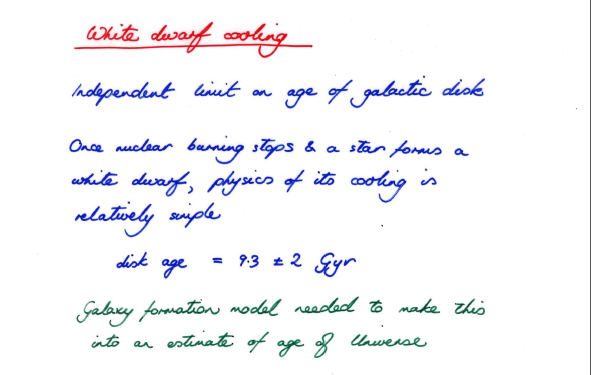 White dwarf cooling
Independent limit on age of galactic disk
Once nuclear burning stops & a star forms a
white dwarf, physics of its cooling is
relatively simple
disk age = 9.3 ± 2 Gyr
Galaxy formation model needed to make this
into an estimate of age of Universe